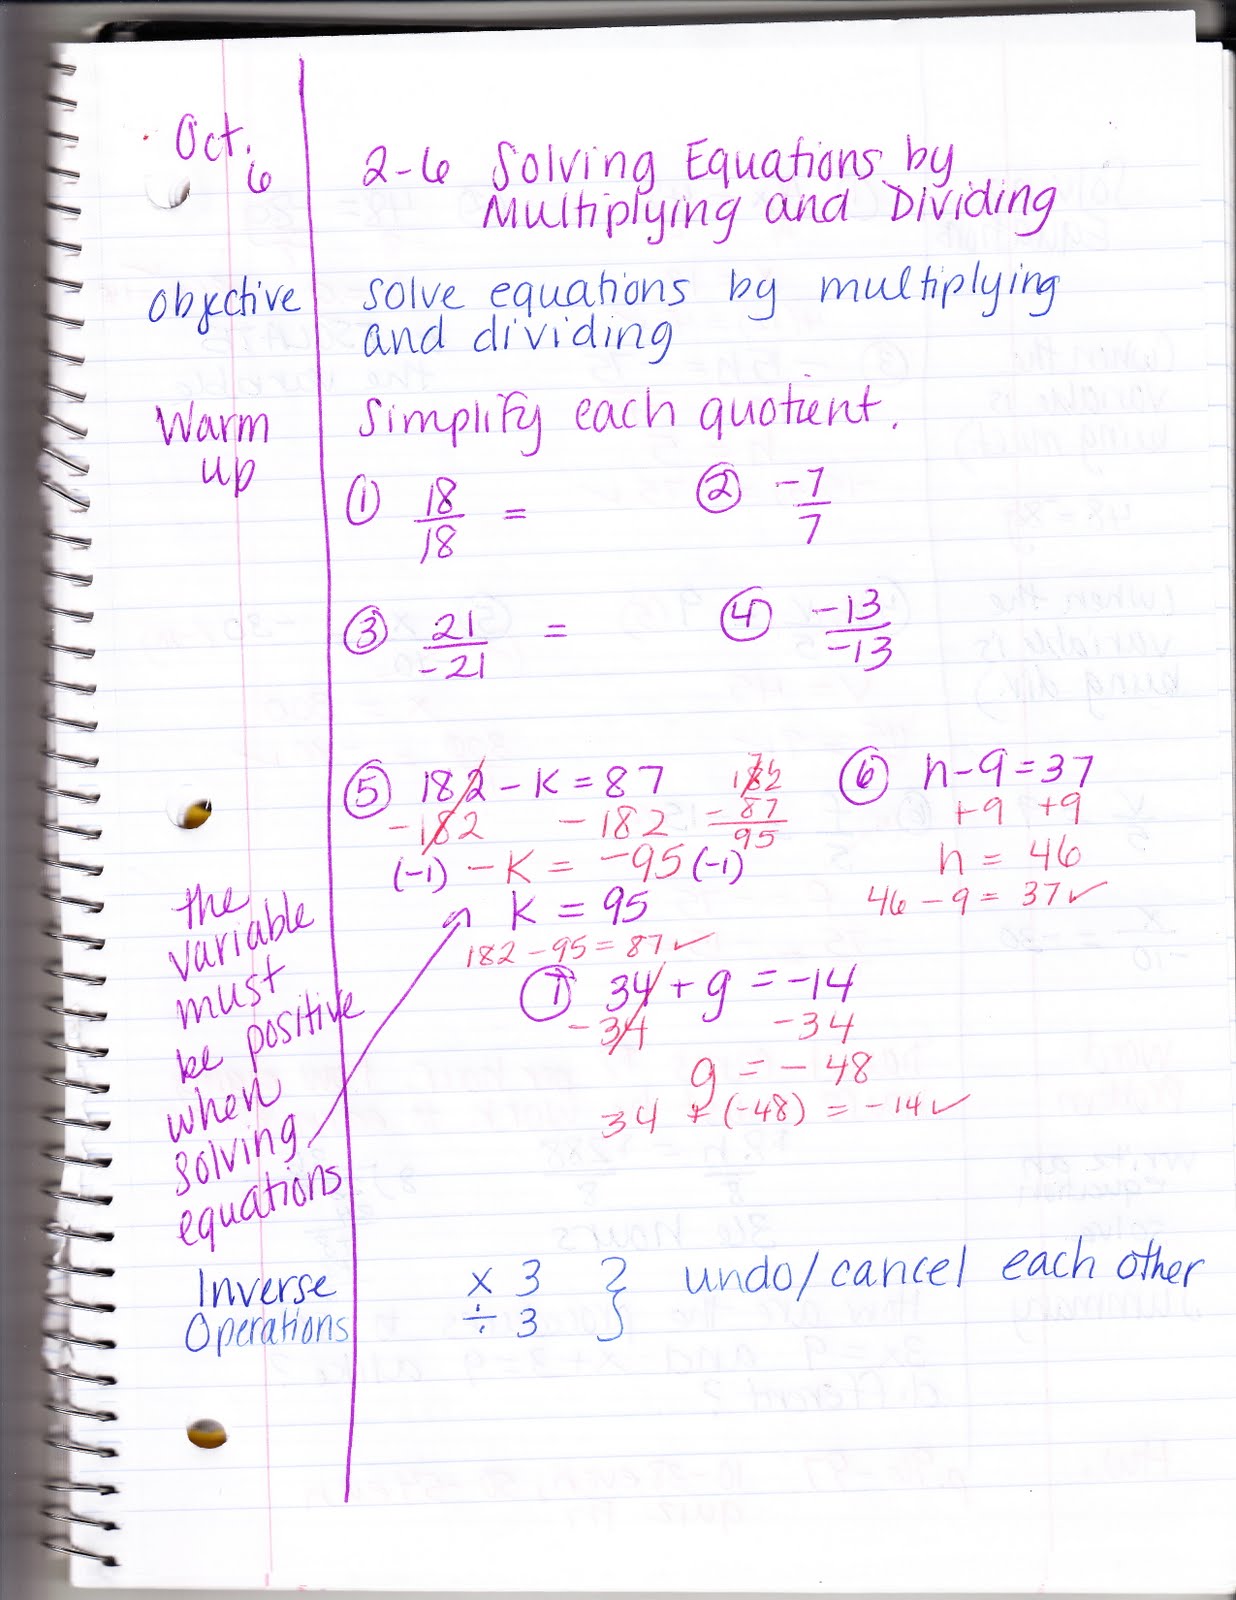 Oct. 6
2-6 Solving Equations by
Multiplying and Dividing
objective
solve equations by multiplying
and dividing
Warm
up
Simplify each quotient.
① 18/18 =
② -7/7
③ 21/-21 =
④ -13/-13
⑤ 182 - k = 87
-182 -182
(-1) -k = -95 (-1)
k = 95
182 - 95 = 87 ✓
182
- 87
95
⑥ n - 9 = 37
+9 +9
n = 46
46 - 9 = 37 ✓
the
variable
must
be positive
when
solving
equations
⑦ 34 + g = -14
-34 -34
g = -48
34 + (-48) = -14 ✓
Inverse
Operations
x 3
÷ 3
} undo/cancel each other